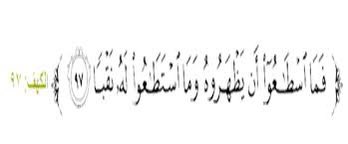 ﴿ فَمَا ٱسۡطَٰعُوٓاْ أَن يَظۡهَرُوهُ وَمَا ٱسۡتَطَٰعُواْ لَهُۥ نَقۡبٗا ٩٧ ﴾ الكهف: ٩٧